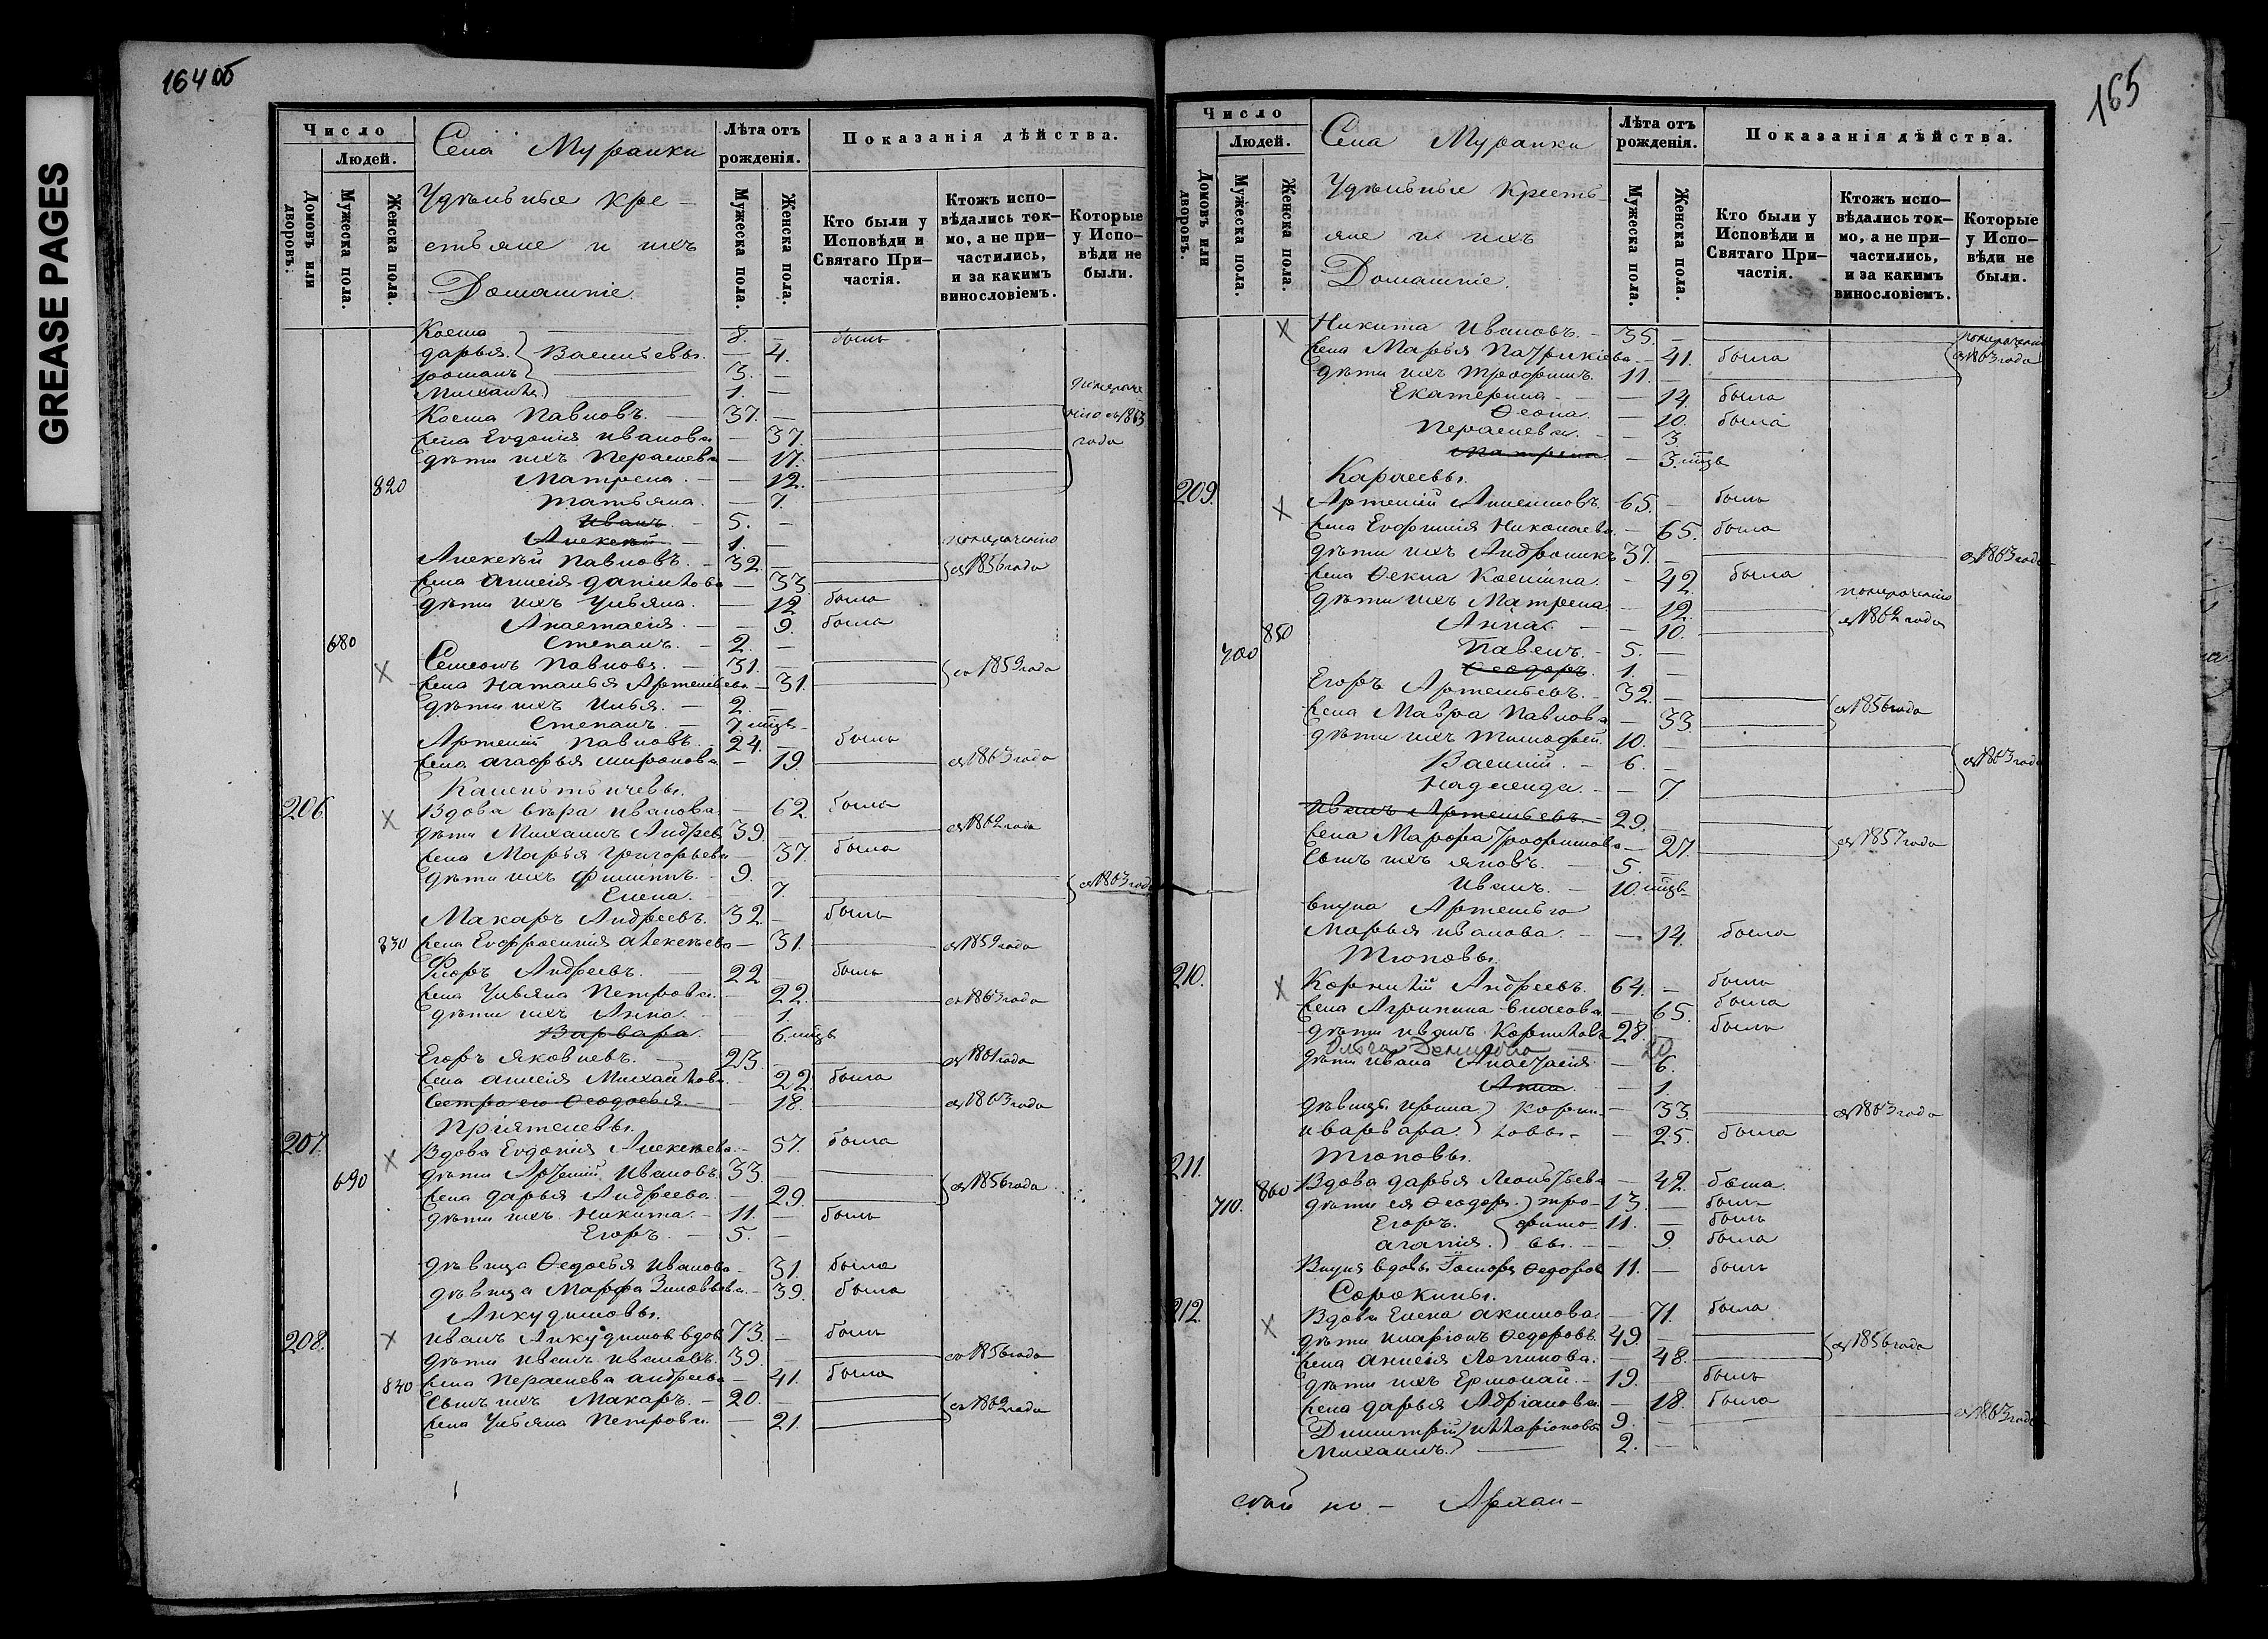 GREASE PAGES
164 об
Число
Людей.
Домовъ или дворовъ.
Мужеска пола.
Женска пола.
Села Муранки
Удѣльные кре-
стьяне и ихъ
Домашніе.
Лѣта отъ рожденія.
Мужеска пола.
Женска пола.
Показанія дѣйства.
Кто были у Исповѣди и Святаго При-частія.
Ктожъ испо-вѣдались ток-мо, а не при-частились, и за какимъ винословіемъ.
Которые у Испо-вѣди не были.
Косма 8. — былъ
Дарья } Васильевы. — 4.
Романъ 3. —
Михаилъ 1. —
Косма Павловъ. 37. — съ 1863
жена Евдокія Иванова — 37. года
дѣти ихъ Параскева — 17.
820 Матрена. — 12.
Татьяна. — 7.
Иванъ 5. —
Алексѣй 1. —
Алексѣй Павловъ. 32. — съ 1856 года
жена Анисія Данилова — 33
дѣти ихъ Ульяна. — 12 была
Анастасія. — 9. была
680 Степанъ. 2. —
Х Семенъ Павловъ. 31. — съ 1859 года
жена Наталья Артемьева — 31.
дѣти ихъ Илья. 2. —
Степанъ. 7. мцъ
Артемій Павловъ. 24. — былъ
жена Агафья Миронова — 19. съ 1863 года
206. Х Вдова Вѣра Иванова. — 62. была
дѣти Михаилъ Андреев. 39. — съ 1862 года
жена Марья Григорьева — 37. была
дѣти ихъ Филиппъ. 9. —
Елена. — 7. съ 1863 года
Макаръ Андреевъ. 32. — былъ
830 жена Евфросинія Алексѣева — 31. съ 1859 года
Флоръ Андреевъ. 22 — былъ
жена Ульяна Петрова. — 22. съ 1863 года
дѣти ихъ Анна. — 1.
Варвара. — 6. мцъ
Егоръ Яковлевъ. 23. — съ 1861 года
жена Анисія Михайлова. — 22. была
Сестра его Ѳеодосья. — 18. съ 1863 года
Пріятелевы.
207. Х Вдова Евдокія Алексѣева. — 57. была
690 дѣти Артемій Ивановъ. 33. — съ 1856 года
жена Дарья Андреева. — 29.
дѣти ихъ Никита. 11. — былъ
Егоръ. 5. —
дѣвица Ѳедосья Иванова — 31. была
дѣвица Марфа Зиновьева. — 39. была
Анкудиновы.
208. Х Иванъ Анкудинов вдов. 73. — былъ
дѣти Иванъ Ивановъ. 39. — съ 1856 года
840 жена Параскева Андреева — 41. была
Сынъ ихъ Макаръ. 20. — съ 1862 года
жена Ульяна Петрова. — 21.
165
Число
Людей.
Домовъ или дворовъ.
Мужеска пола.
Женска пола.
Села Муранки
Удѣльные кресть-
яне и ихъ
Домашніе.
Лѣта отъ рожденія.
Мужеска пола.
Женска пола.
Показанія дѣйства.
Кто были у Исповѣди и Святаго При-частія.
Ктожъ испо-вѣдались ток-мо, а не при-частились, и за какимъ винословіемъ.
Которые у Испо-вѣди не были.
Х Никита Ивановъ. 35. —
жена Марья Патрикіева. — 41. была съ 1863 года
дѣти ихъ Трофимъ. 11. —
Екатерина. — 14. была
Ѳеона. — 10. была
Параскева. — 3.
Матрена. — 3. мцъ
Карсаевы.
209. Х Артемій Алексѣевъ. 65. — былъ
жена Евфимія Николаева. — 65. была
дѣти ихъ Андроникъ 37. — съ 1863 года
жена Ѳекла Космина. — 42. была
дѣти ихъ Матрена. — 12. съ 1862 года
850 Анна. — 10.
700 Павелъ. 5. —
Ѳеодоръ. 1. —
Егоръ Артемьевъ. 32. — съ 1856 года
жена Мавра Павлова — 33.
дѣти ихъ Тимофей. 10. —
Василій. 6. — съ 1863 года
Надежда. — 7.
Иванъ Артемьевъ. 29. —
жена Марфа Трофимова — 27. съ 1857 года
Сынъ ихъ Яковъ. 5. —
Иванъ. 10. мцъ
внука Артемья
Марья Иванова. — 14. была
Тюповы.
210. Х Корнилій Андреевъ. 64. — былъ
жена Агрипина Власова. — 65. была
дѣти Иванъ Корниловъ 28. — былъ
20
дѣти Ивана Анастасія — 6.
Анна. — 1.
дѣвицы Ирина } Корни- — 33. съ 1863 года
и Варвара. } ловы. — 25. была
Тюповы.
211. 860 Вдова Дарья Леонтьева — 42. была.
710. дѣти ея Ѳеодоръ } Тро- 13. — былъ
Егоръ. } фимо- 11. — былъ
Агапія. } вы. — 9. была
Внукъ вдовы Ѳедоров 11. — былъ
Сорокины.
212. Х Вдова Елена Акимова. — 71. была
дѣти Иларіонъ Ѳедоровъ. 49. — съ 1856 года
жена Анисія Логинова. — 48.
дѣти ихъ Ермолай. 19. — былъ
жена Дарья Адріанова. — 18. была
Димитрій } Илларіоновы 9. — съ 1863 года
Михаилъ. } 2. —
Архан-